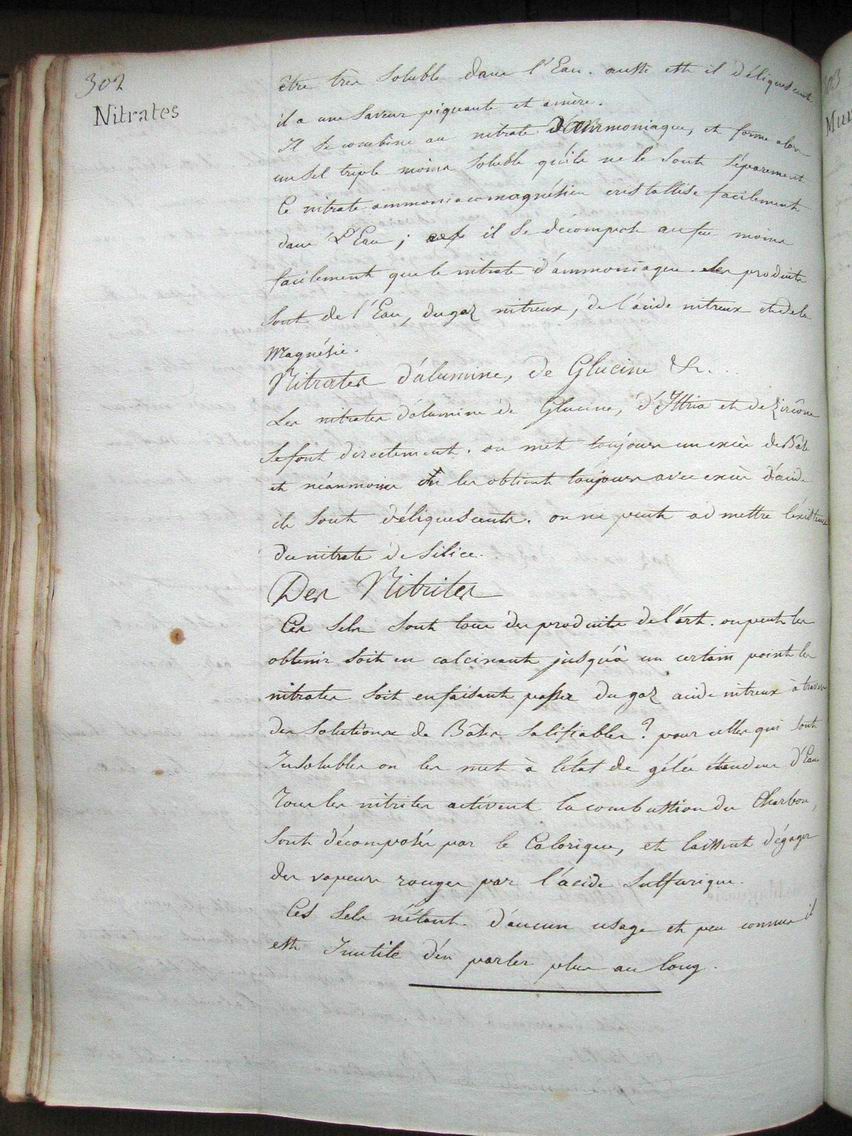 302
Nitrates
être très soluble dans l'Eau. aussi est il déliquescent
il a une saveur piquante et amère.
Il se combine au nitrate d'ammoniaque, et forme alors
un sel triple moins soluble qu'ils ne le sont séparément
Ce nitrate ammoniaco magnésien cristallise facilement
dans l'Eau; il se décompose au feu moins
facilement que le nitrate d'ammoniaque. les produits
sont de l'Eau, du gaz nitreux, de l'acide nitreux et de la
Magnésie.
Nitrates d'alumine, de Glucine &c.
Les nitrates d'alumine de Glucine, d'Ittria et de Zircône
se font directement. on met toujours un excès de Bâse
et néanmoins on les obtient toujours avec excès d'acide
ils sont déliquescents. on ne peut admettre l'existence
du nitrate de Silice.
Des Nitrites
Ces sels sont tous des produits de l'art. on peut les
obtenir soit en calcinant jusqu'à un certain point les
nitrates soit en faisant passer du gaz acide nitreux à travers
des solutions de Bâses salifiables? pour celles qui sont
Insolubles on les met à l'état de gélée étendues d'Eau
Tous les nitrites activent la combustion du Charbon,
sont décomposés par le Calorique, et laissent dégager
des vapeurs rouges par l'acide Sulfurique.
Ces sels n'étant d'aucun usage et peu connus il
est Inutile d'en parler plus au long.